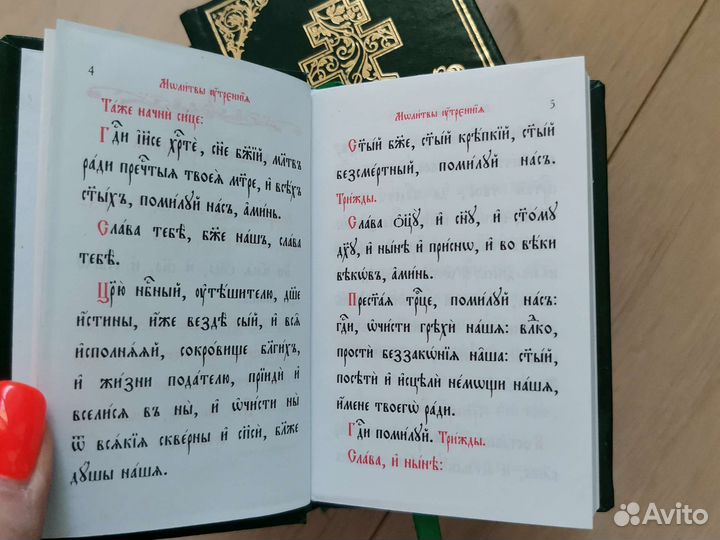 4
Мѡли́твы ᲂу҆́трєннїѧ
Та́же начни́ си́це:
Гдⷭ҇и і҆и҃се хрⷭ҇те́, сн҃е бж҃їй, мл҃твъ
ра́ди пречⷭ҇тыѧ твоеѧ̀ мт҃ре, и҆ всѣ́хъ
ст҃ы́хъ, поми́лꙋй на́съ, а҆ми́нь.
Сла́ва тебѣ̀, бж҃е на́шъ, сла́ва
тебѣ̀.
Цр҃ю̀ нбⷭ҇ный, ᲂу҆тѣ́шителю, дш҃е
и҆́стины, и҆́же вездѣ̀ сы́й, и҆ всѧ̑
и҆сполнѧ́ѧй, сокро́вище бл҃ги́хъ,
и҆ жи́зни пода́телю, прїидѝ и҆
всели́сѧ въ ны̀, и҆ ѡ҆чи́сти ны̀
ѿ всѧ́кїѧ скве́рны и҆ сп҃сѝ, бл҃же
дꙋ́шы на́шѧ.
Мѡли́твы ᲂу҆́трєннїѧ
5
Ст҃ы́й бж҃е, ст҃ы́й крѣ́пкїй, ст҃ы́й
безсме́ртный, поми́лꙋй на́съ.
Три́жды.
Сла́ва ѻ҆ц҃ꙋ̀, и҆ сн҃ꙋ, и҆ ст҃о́мꙋ
дх҃ꙋ, и҆ ны́нѣ и҆ при́снѡ, и҆ во вѣ́ки
вѣкѡ́въ, а҆ми́нь.
Прест҃а́ѧ трⷪ҇це, поми́лꙋй на́съ:
гдⷭ҇и, ѡ҆чи́сти грѣхѝ на́шѧ: влⷣко,
простѝ беззакѡ́нїѧ на̑ша: ст҃ы́й,
посѣтѝ и҆ и҆сцѣлѝ не́мѡщи на́шѧ,
и҆́мене твоегѡ̀ ра́ди.
Гдⷭ҇и поми́лꙋй. Три́жды.
Сла́ва, и҆ ны́нѣ:
Avito